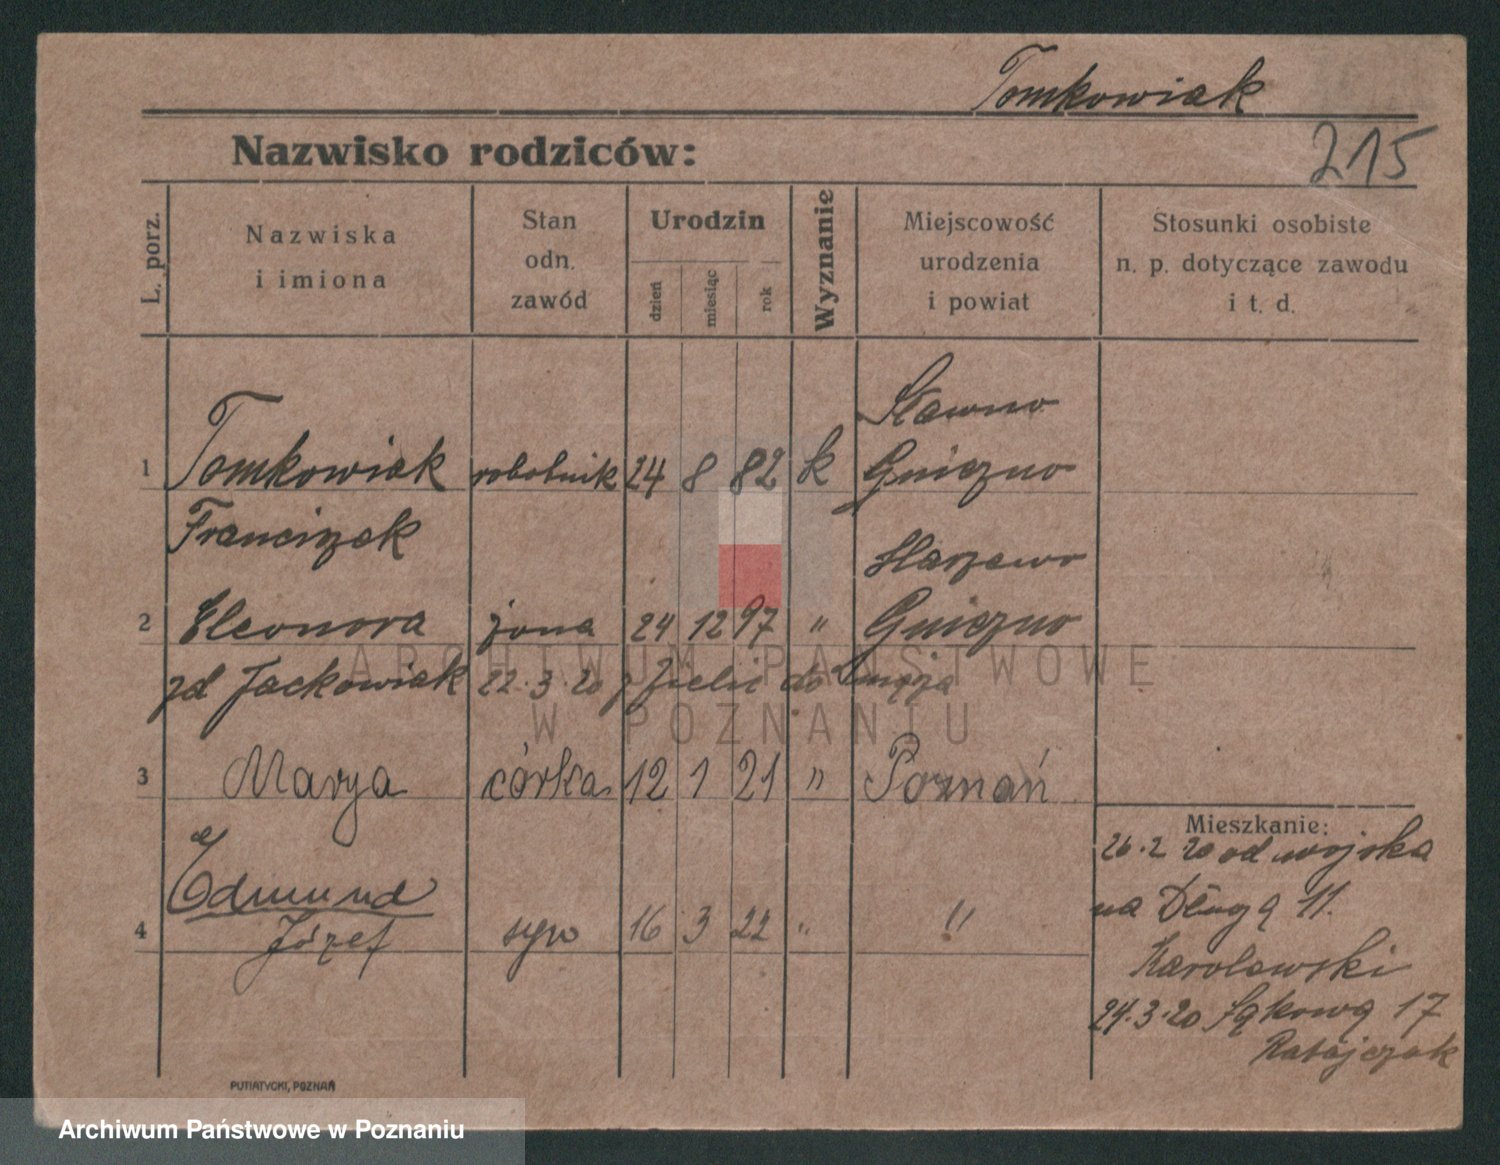 Tomkowiak
215
Nazwisko rodziców:
L. porz.
Nazwiska i imiona
Stan odn. zawód
Urodzin
dzień
miesiąc
rok
Wyznanie
Miejscowość urodzenia i powiat
Stosunki osobiste n. p. dotyczące zawodu i t. d.
Sławno
1 Tomkowiak robotnik 24 8 82 k Gniezno
Franciszek
2 Eleonora żona 24 12 97 " Gniezno
zd Jackowiak 22.3.20 do męża
3 Marya córka 12 1 21 " Poznań
4 Edmund
Józef syn 16 3 22 " "
Mieszkanie:
26.2 20 od wojska
na Długą 11.
Karolewski
24.3.20 Łąkową 17
Ratajczak
PUTIATYCKI, POZNAŃ
ARCHIWUM PAŃSTWOWE
W POZNANIU
Archiwum Państwowe w Poznaniu